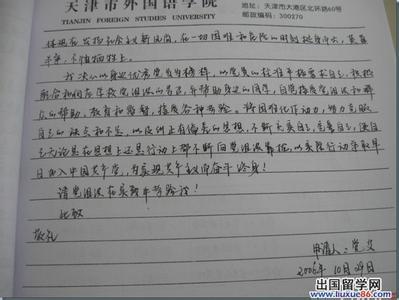 天津市外国语学院
TIANJIN FOREIGN STUDIES UNIVERSITY
地址:天津市大港区北环路60号
邮政编码:300270
体现在发扬社会主义新风尚,在一切困难和危险的时刻挺身而出,英勇
斗争,不怕牺牲上。
我决心以身边优秀党员为榜样,以党员的标准严格要求自己,积极
配合和拥护学校党组织的号召,并帮助身边的同学,自觉接受党组织和群
众的帮助、教育和监督,接受各种考验。将困难化作动力,努力克服
自己的缺点和不足,以及纠正有偏差的思想,不断充实自己,完善自己,使自
己无论是在思想上还是行动上都不断向党组织靠拢,以实际行动争取早
日加入中国共产党,为实现共产主义而奋斗终身!
请党组织在实践中考验我!
此致
敬礼
申请人:党
2006年10月29日
出国留学网
www.liuxue86.com